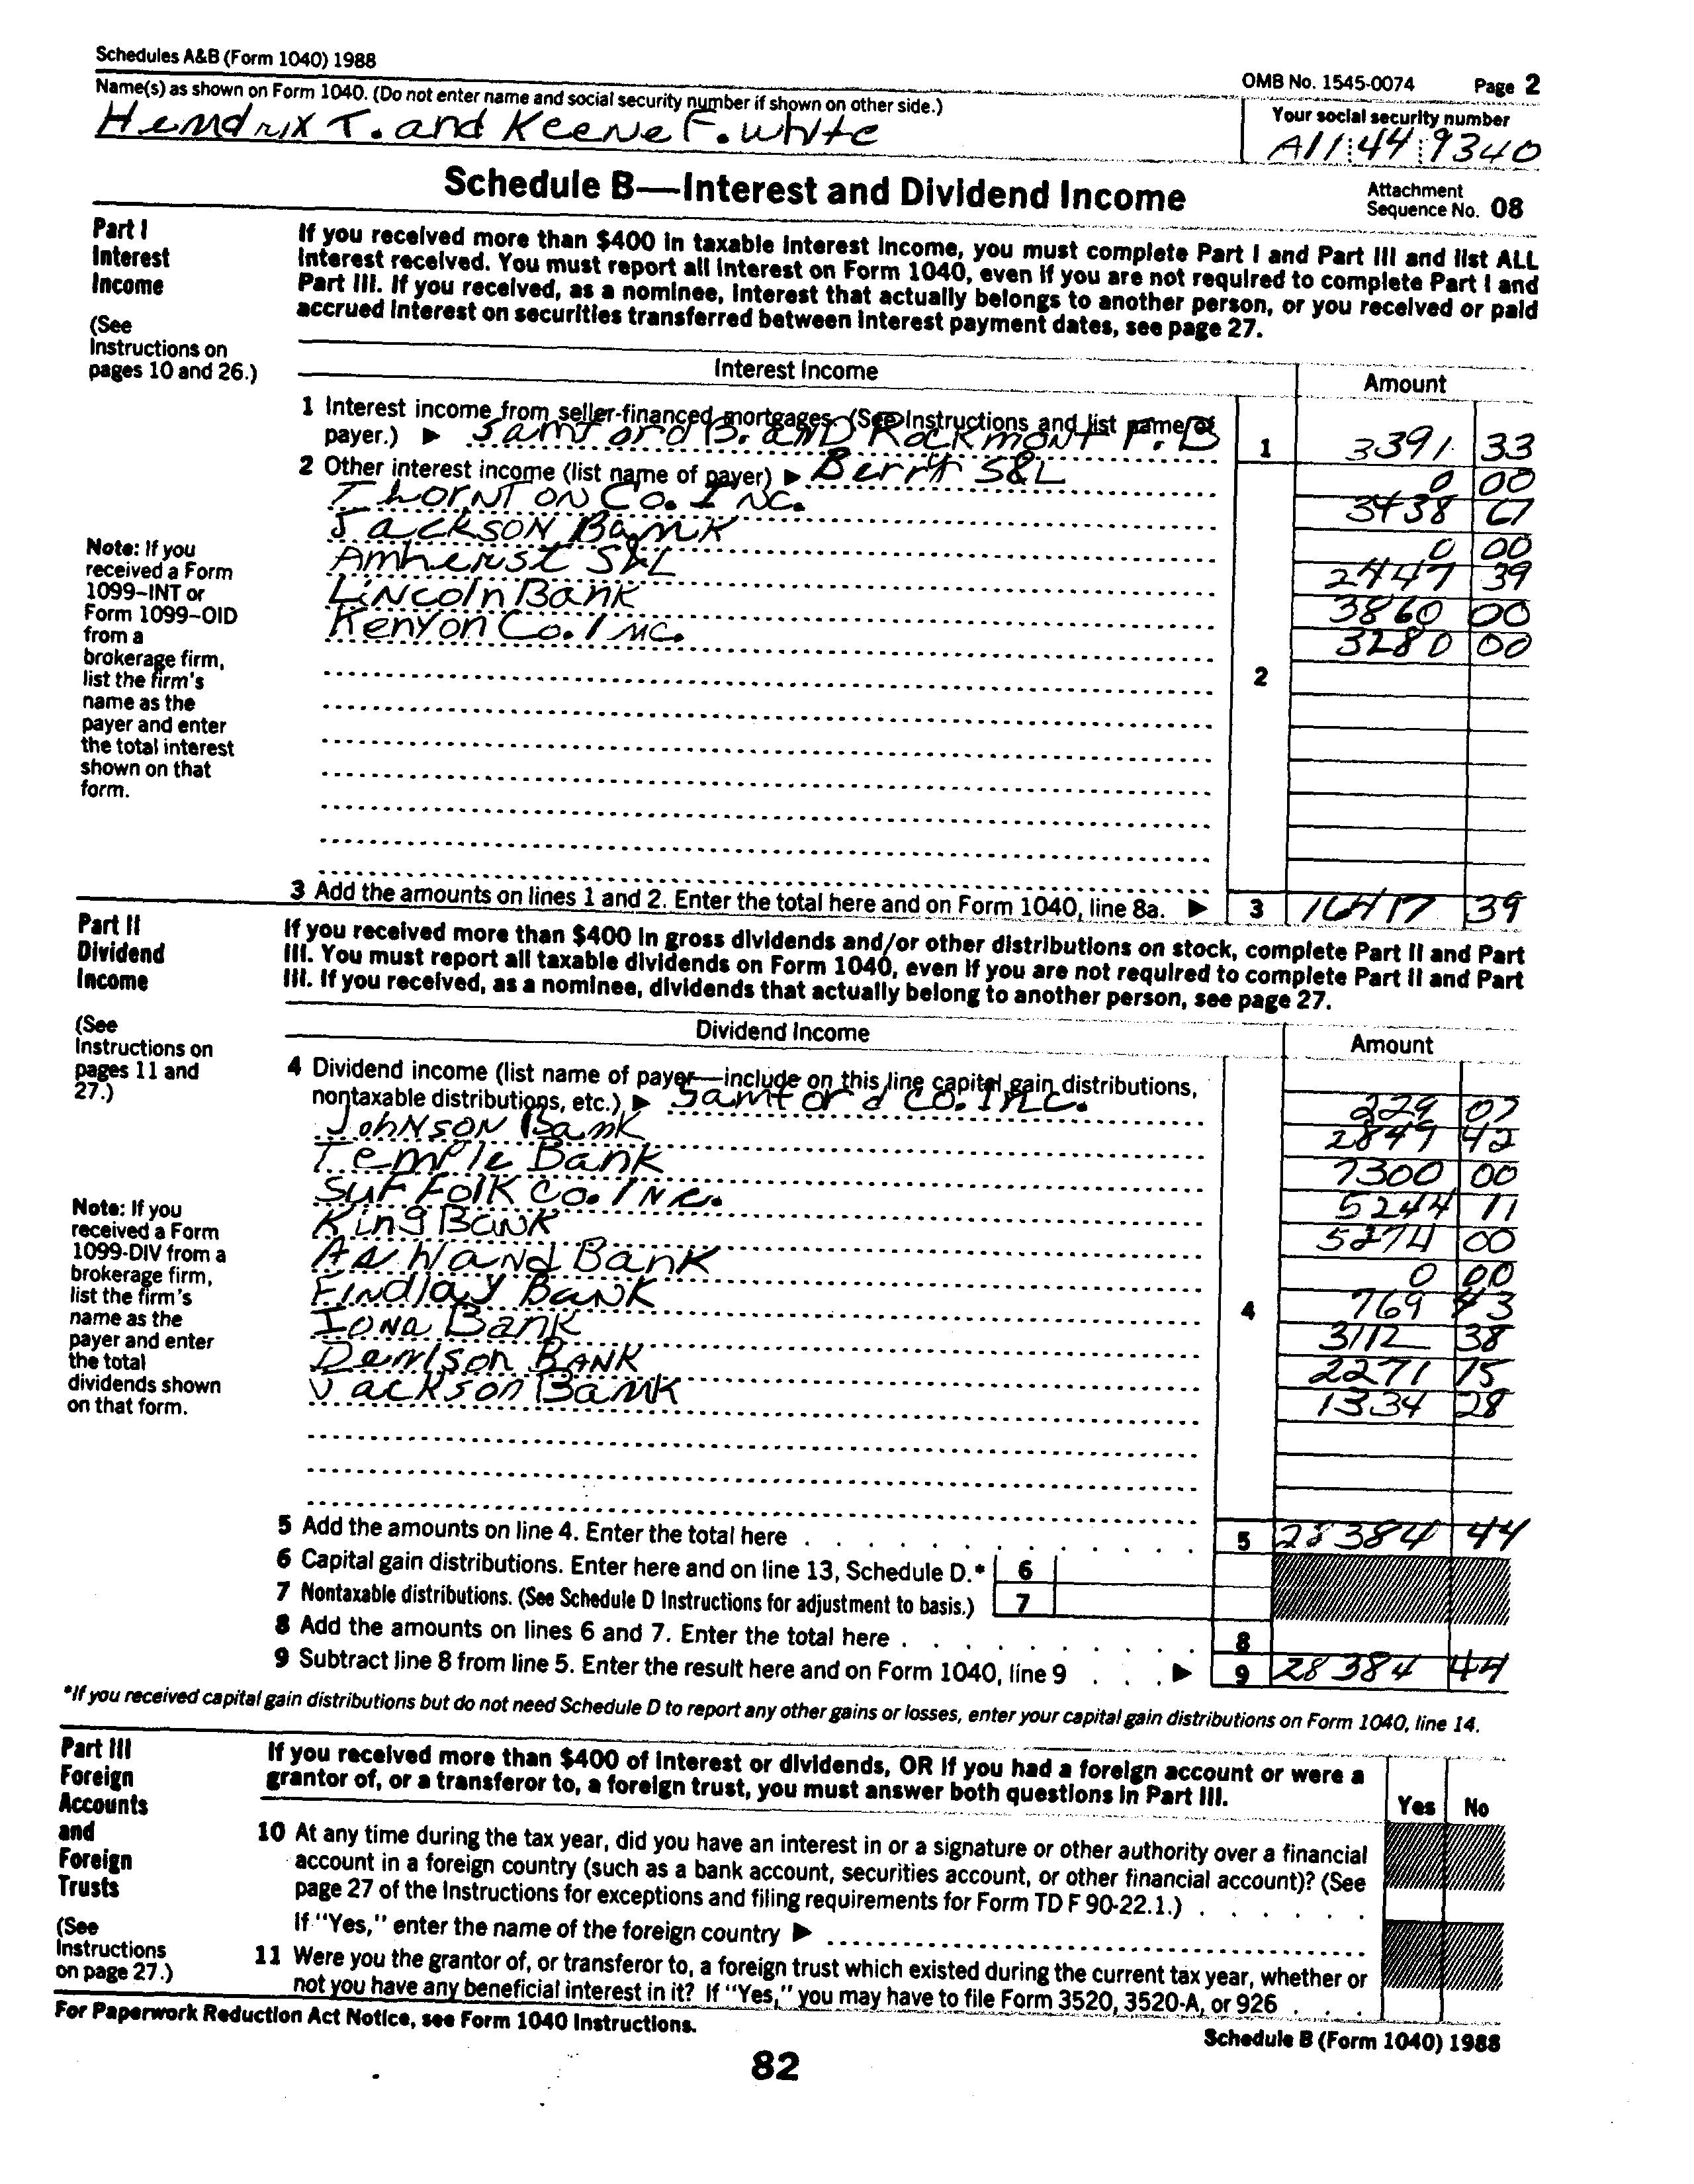 Schedules A&B (Form 1040) 1988
OMB No. 1545-0074 Page 2
Name(s) as shown on Form 1040. (Do not enter name and social security number if shown on other side.)
Your social security number
Hendrix T. and Keene F. White
A11 44 9340
Schedule B—Interest and Dividend Income
Attachment
Sequence No. 08
Part I
Interest
Income
(See
Instructions on
pages 10 and 26.)
If you received more than $400 in taxable interest income, you must complete Part I and Part III and list ALL
interest received. You must report all interest on Form 1040, even if you are not required to complete Part I and
Part III. If you received, as a nominee, interest that actually belongs to another person, or you received or paid
accrued interest on securities transferred between interest payment dates, see page 27.
Interest Income Amount
1 Interest income from seller-financed mortgages. (See Instructions and list name of
payer.) ▶ Samford B. and Rockmont P. B 1 3391 33
2 Other interest income (list name of payer) ▶ Berry S&L 0 00
Thornton Co. Inc. 3438 67
Jackson Bank 0 00
Amherst S&L 2447 39
Lincoln Bank 3860 00
Kenyon Co. Inc. 3280 00
2
Note: If you
received a Form
1099–INT or
Form 1099–OID
from a
brokerage firm,
list the firm's
name as the
payer and enter
the total interest
shown on that
form.
3 Add the amounts on lines 1 and 2. Enter the total here and on Form 1040, line 8a. ▶ 3 16417 39
Part II
Dividend
Income
(See
Instructions on
pages 11 and
27.)
If you received more than $400 in gross dividends and/or other distributions on stock, complete Part II and Part
III. You must report all taxable dividends on Form 1040, even if you are not required to complete Part II and Part
III. If you received, as a nominee, dividends that actually belong to another person, see page 27.
Dividend Income Amount
4 Dividend income (list name of payer—include on this line capital gain distributions,
nontaxable distributions, etc.) ▶ Samford Co. Inc. 229 07
Johnson Bank 2849 42
Temple Bank 7300 00
Suffolk Co. Inc. 5244 11
King Bank 5274 00
Ashland Bank 0 00
Findlay Bank 769 43
Iona Bank 3112 38
Denison Bank 2271 75
Jackson Bank 1334 28
4
Note: If you
received a Form
1099-DIV from a
brokerage firm,
list the firm's
name as the
payer and enter
the total
dividends shown
on that form.
5 Add the amounts on line 4. Enter the total here . . . 5 28384 44
6 Capital gain distributions. Enter here and on line 13, Schedule D.* 6
7 Nontaxable distributions. (See Schedule D Instructions for adjustment to basis.) 7
8 Add the amounts on lines 6 and 7. Enter the total here . . . 8
9 Subtract line 8 from line 5. Enter the result here and on Form 1040, line 9 . . . ▶ 9 28384 44
*If you received capital gain distributions but do not need Schedule D to report any other gains or losses, enter your capital gain distributions on Form 1040, line 14.
Part III
Foreign
Accounts
and
Foreign
Trusts
(See
Instructions
on page 27.)
If you received more than $400 of interest or dividends, OR if you had a foreign account or were a
grantor of, or a transferor to, a foreign trust, you must answer both questions in Part III.
Yes No
10 At any time during the tax year, did you have an interest in or a signature or other authority over a financial
account in a foreign country (such as a bank account, securities account, or other financial account)? (See
page 27 of the Instructions for exceptions and filing requirements for Form TD F 90-22.1.) . . . . . .
If "Yes," enter the name of the foreign country ▶
11 Were you the grantor of, or transferor to, a foreign trust which existed during the current tax year, whether or
not you have any beneficial interest in it? If "Yes," you may have to file Form 3520, 3520-A, or 926 . . .
For Paperwork Reduction Act Notice, see Form 1040 Instructions.
Schedule B (Form 1040) 1988
82